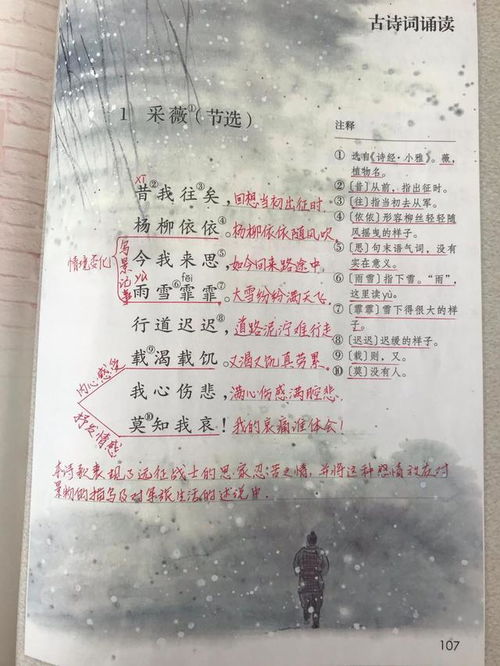 古诗词诵读
1 采薇①(节选)
注释
① 选自《诗经·小雅》。薇,
植物名。
②〔昔〕从前,指出征时。
③〔往〕指当初去从军。
④〔依依〕形容柳丝轻轻随
风摇曳的样子。
⑤〔思〕句末语气词,没有
实在意义。
⑥〔雨雪〕指下雪。“雨”,
这里读yù。
⑦〔霏霏〕雪下得很大的样
子。
⑧〔迟迟〕迟缓的样子。
⑨〔载〕则,又。
⑩〔莫〕没有人。
xī
昔②我往③矣,回想当初出征时.
杨柳依依④。杨柳依依随风吹.
今我来思⑤,如今回来路途中.
yù fēi
雨雪⑥霏霏⑦。大雪纷纷满天飞.
行道迟迟⑧,道路泥泞难行走
载⑨渴载饥。又渴又饥真劳累.
我心伤悲,满心伤感满腔悲.
莫⑩知我哀!我的哀痛谁体会!
情境变化
写景记事
内心感受
抒发情感
本诗歌表现了远征战士的思家忍苦之情,并将这种感情放在对
景物的描写及对军旅生活的述说中.
107